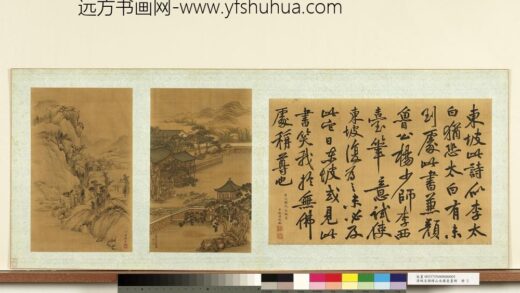 远方书画网-www.yfshuhua.com
東坡此詩似李太
白猶恐太白有未
到處此書兼顏
魯公楊少師李西
臺筆意試使
東坡復為之未必及
此它日東坡或見此
書笑我於無佛
處稱尊也